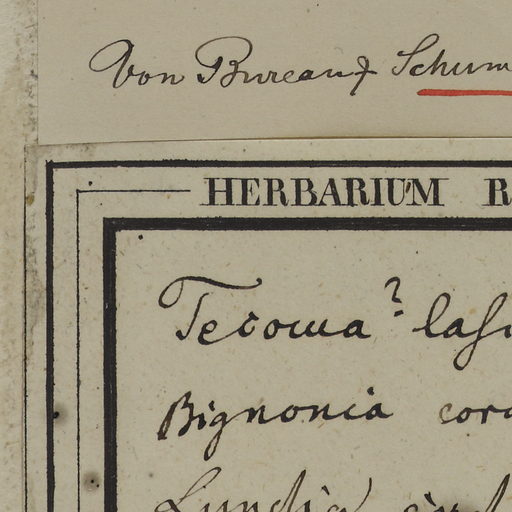 Von Bureau & Schum
HERBARIUM R
Tecoma? lasi
Bignonia cord
Lundia